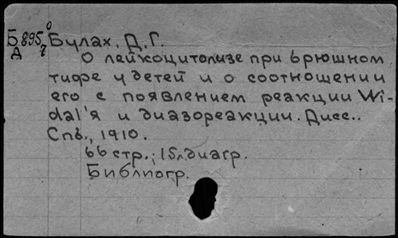 Б 895 Булах, Д.Г.
Д 7
О лейкоцитолизе при брюшном
тифе у детей и о соотношении
его с появлением реакции Wi-
dal'я и диазореакции. Дисс..
Спб., 1910.
66 стр.; 15 л диагр.
Библиогр.